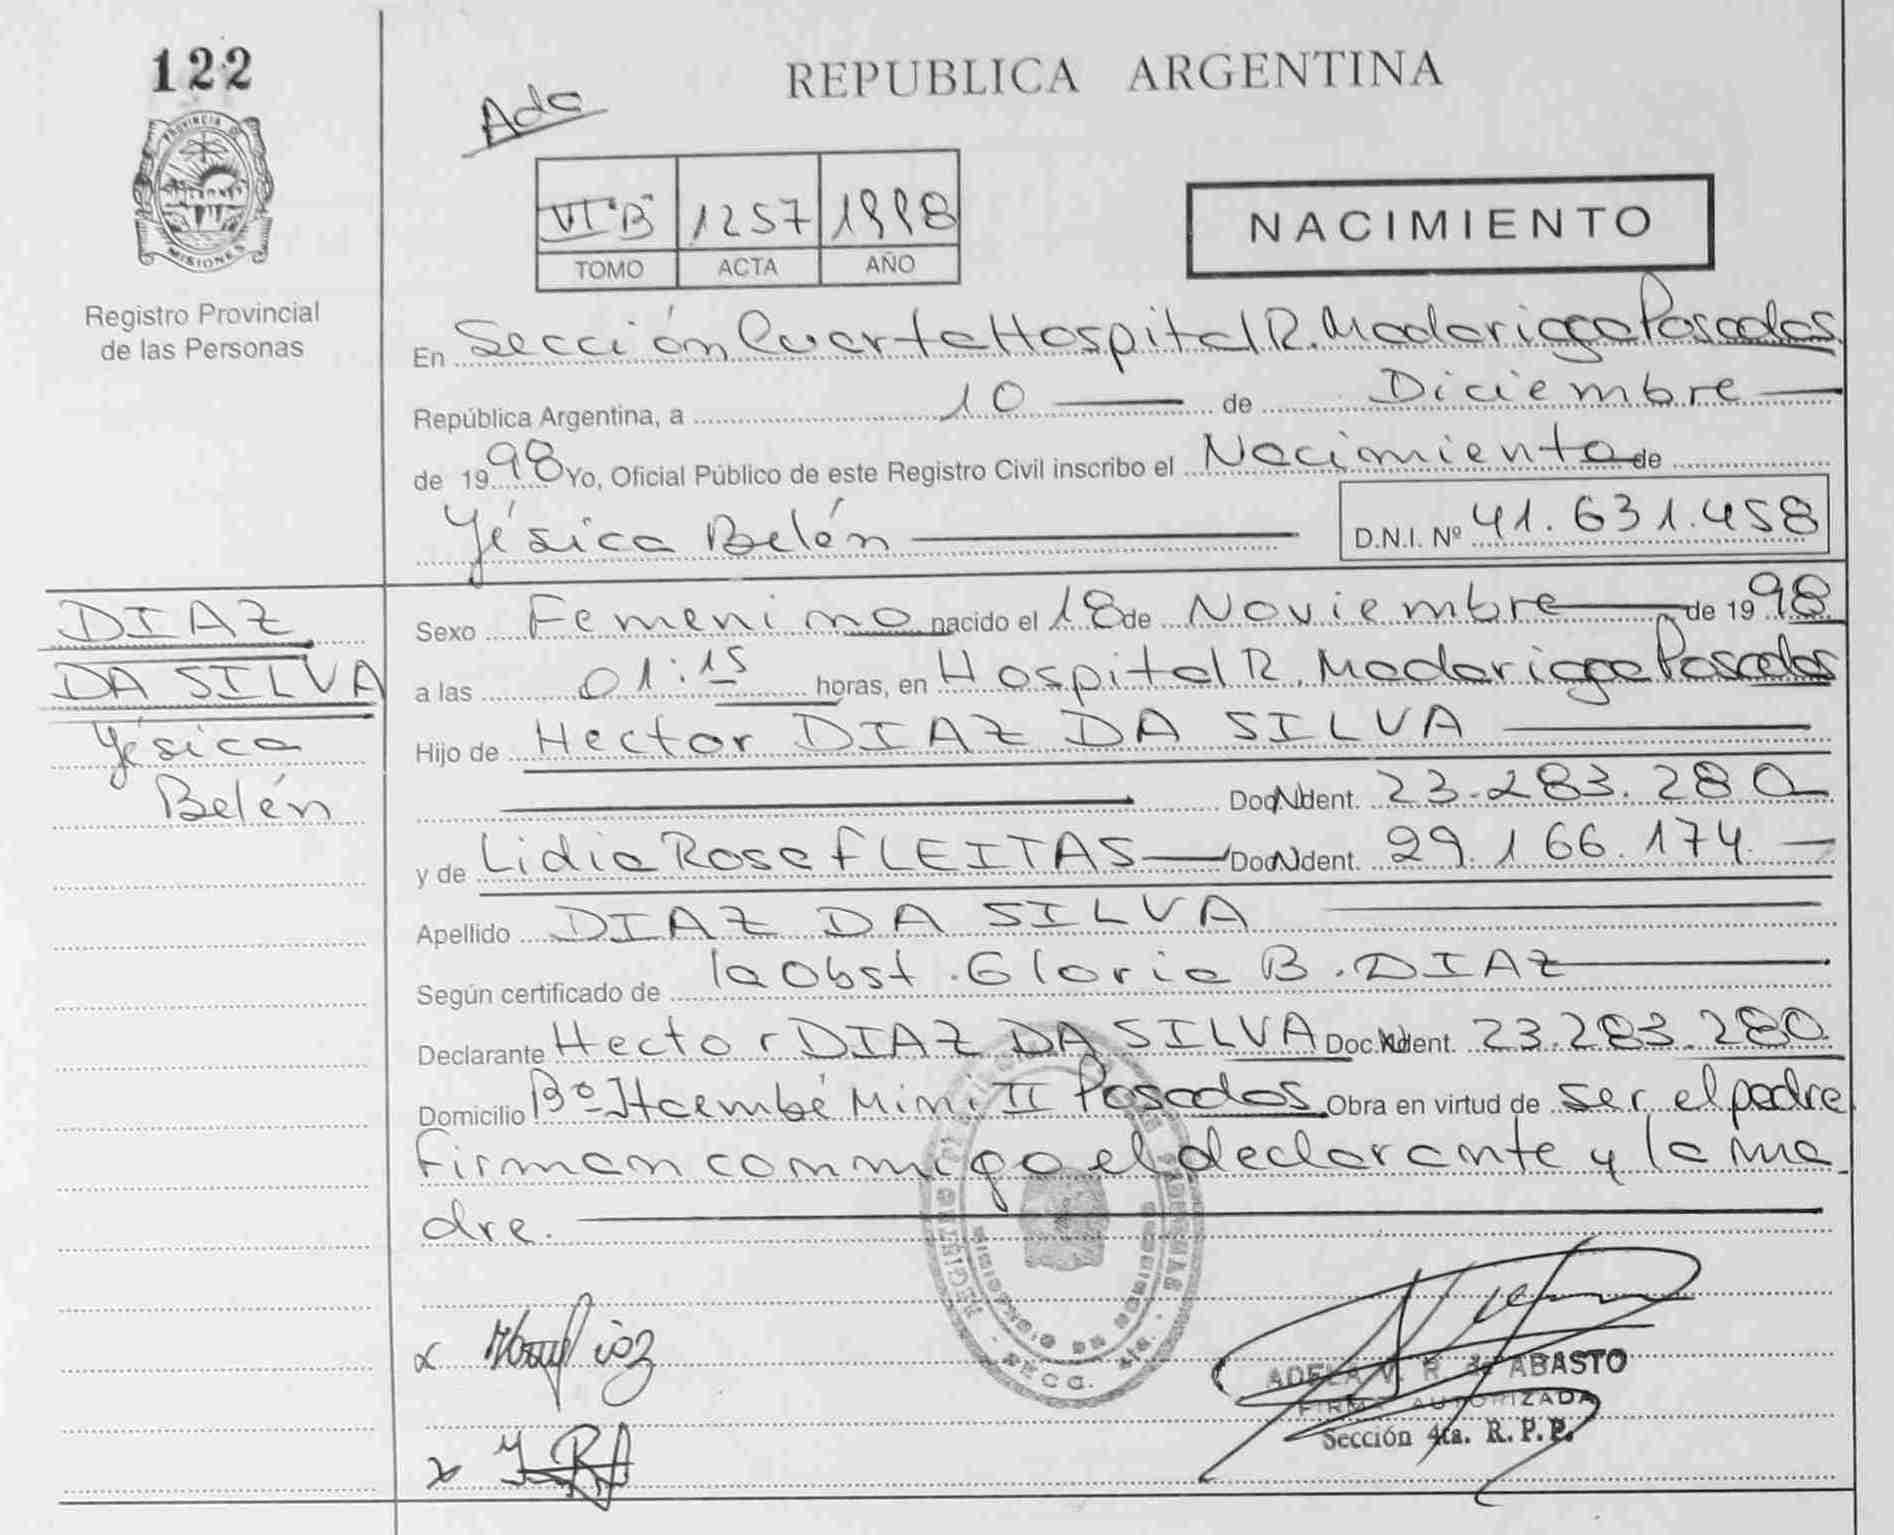 122
PROVINCIA DE
MISIONES
Registro Provincial
de las Personas
REPUBLICA ARGENTINA
Ada
VI"B" 1257 1998
TOMO ACTA AÑO
NACIMIENTO
En Sección Cuarta Hospital R. Madariaga Posadas
República Argentina, a 10 de Diciembre
de 1998 Yo, Oficial Público de este Registro Civil inscribo el Nacimiento de
Yésica Belén D.N.I. Nº 41.631.458
DIAZ
DA SILVA
Yésica
Belén
Sexo Femenino nacido el 18 de Noviembre de 1998
a las 01:15 horas, en Hospital R. Madariaga Posadas
Hijo de Hector DIAZ DA SILVA
Doc. Ident. 23.283.280
y de Lidia Rosa FLEITAS Doc. Ident. 29.166.174
Apellido DIAZ DA SILVA
Según certificado de la Obst. Gloria B. DIAZ
Declarante Hector DIAZ DA SILVA Doc. Ident. 23.283.280
Domicilio Bº Itaembé Mini II Posadas Obra en virtud de ser el padre
Firman conmigo el declarante y la ma
dre.
ADELA V. R. ABASTO
FIRMA AUTORIZADA
Sección 4ta. R. P. P.